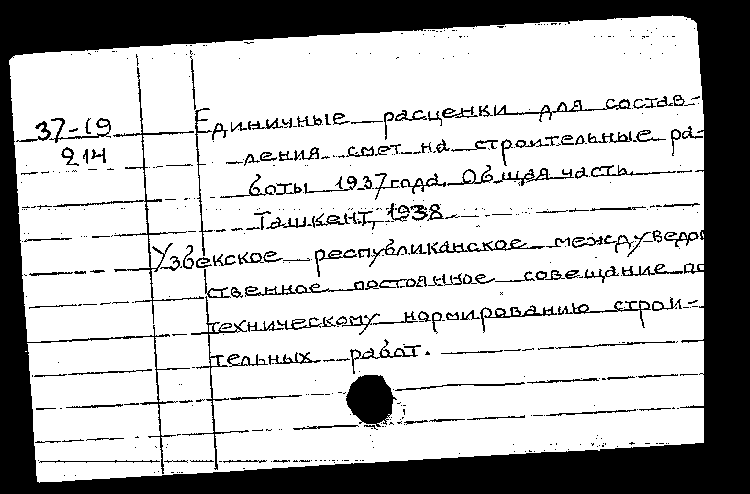 37-19
214
Единичные расценки для состав-
ления смет на строительные ра-
боты 1937 года. Общая часть.
Ташкент, 1938
Узбекское республиканское междуведом
ственное постоянное совещание по
техническому нормированию строи-
тельных работ.